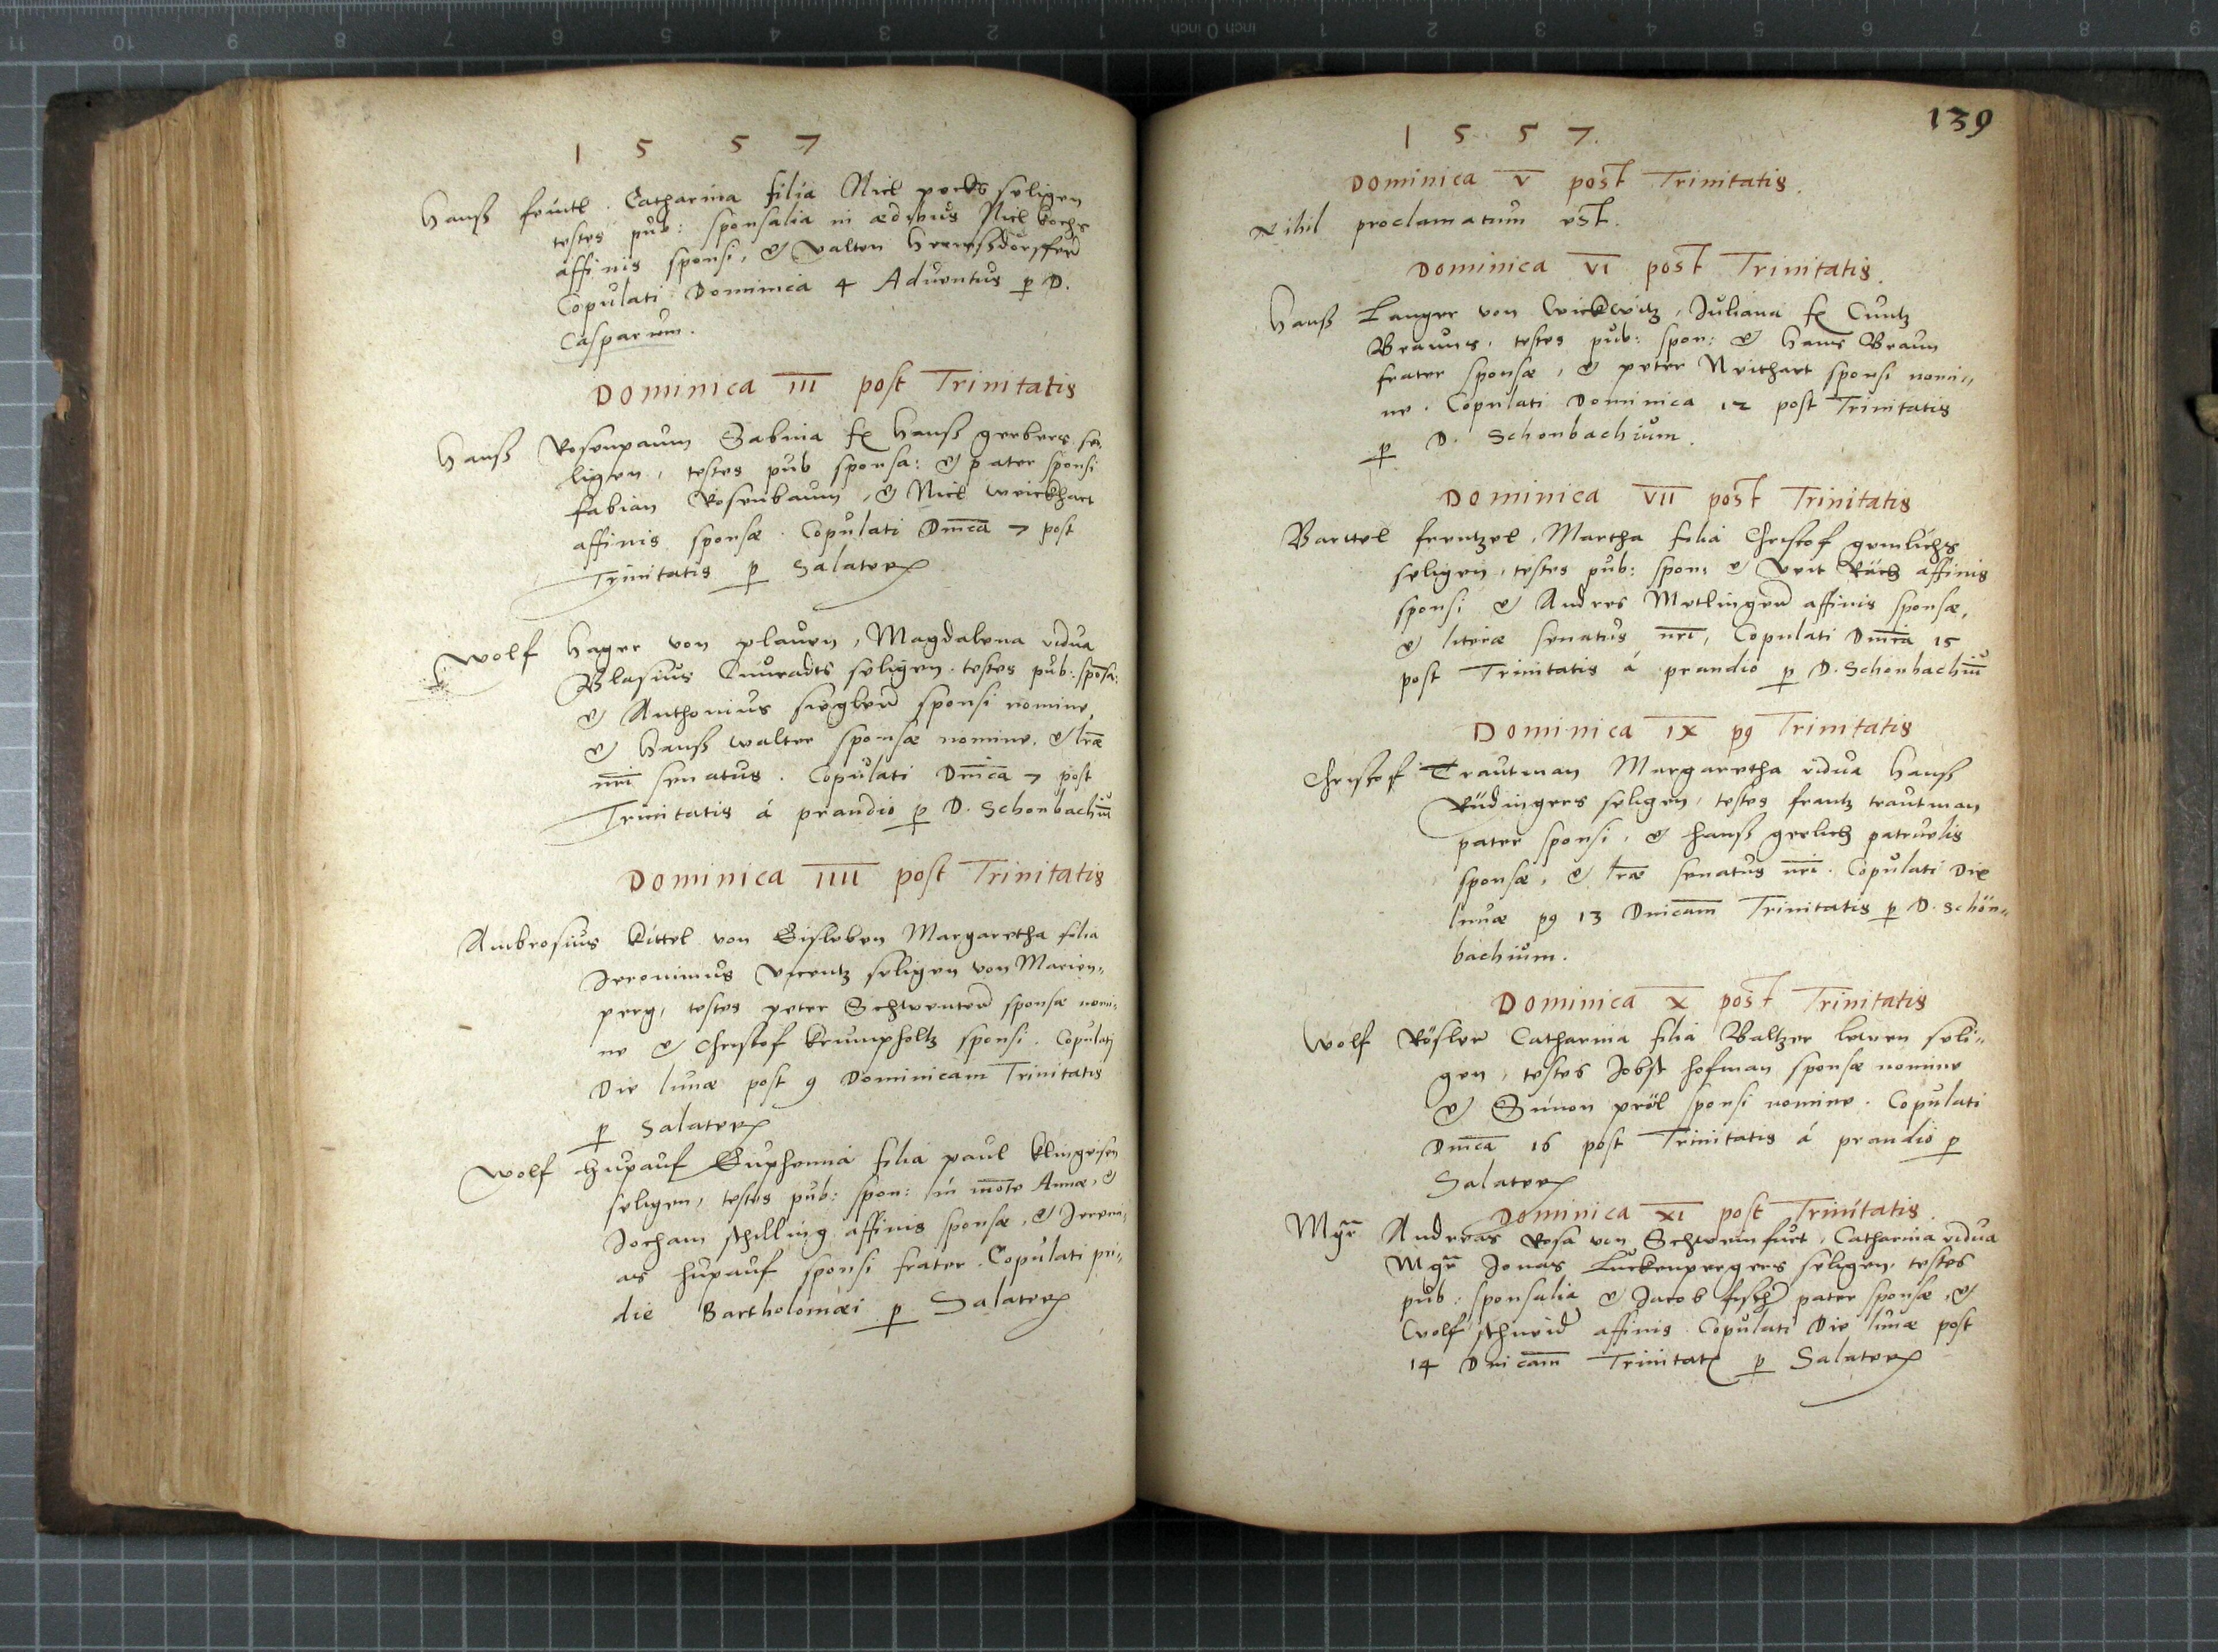 1 5 5 7
Hanß freutl. Catharina filia Nicl pecks seligen
testes pub: sponsalia in ædibus Nicl kochs
affinis sponsi, & Valten
Copulati Dominica 4 Adventus p D.
Casparum.
Dominica III post Trinitatis
Hanß Rosenpaum Sabina f Hanß gerbers se,
ligen, testes pub sponsa: & pater sponsi
fabian Rosenbaum, & Nicl weickhart
affinis sponsæ. Copulati Dnica 7 post
Trinitatis p Salater
Wolf Hager von plauen, Magdalena vidua
Blasius Cunradts seligen. testes pub: sponsa:
& Anthonius siegler sponsi nomine,
& Hanß walter sponsæ nomine, & lræ
nri senatus. Copulati Dnica 7 post
Trinitatis á prandio p D. Schonbachiu
Dominica IIII post Trinitatis
Ambrosius kittel von Eisleben Margaretha filia
Jeronimus Vicentz seligen von Marien„
perg, testes peter Schwenter sponsæ nomi„
ne & Christof krumpholtz sponsi. Copulati
Die lunæ post 9 Dominicam Trinitatis
p Salater
Wolf hupauf Euphemia filia paul klingeisen
seligen, testes pub: spon: in mote Annæ, &
Jocham schilling affinis sponsæ, & Jeremi,
as hupauf sponsi frater. Copulati pri„
die Bartholomæi p Salater
139
1 5 5 7.
Dominica V post Trinitatis.
Nihil proclamatum est.
Dominica VI post Trinitatis.
Hanß Langer von Wickwitz, Juliana f Cuntz
Brauns, testes pub: spon: & Hans Braun
frater sponsæ, & peter Neithart sponsi nomi„
ne. Copulati Dominica 12 post Trinitatis
p D. Schonbachium.
Dominica VII post Trinitatis
Barttel frentzel, Martha filia Christof gemlichs
seligen, testes pub: spon: & Veit affinis
sponsi & Andres Metlinger affinis sponsæ,
& literæ senatus nri, Copulati Dnica 15
post Trinitatis á prandio p D. Schonbachiu
Dominica IX p9 Trinitatis
Christof Trautman Margaretha vidua Hanß
Rüdingers seligen, testes frantz trautman
pater sponsi, & hanß gerlich patruelis
sponsæ, & lræ senatus nri. Copulati Die
lunæ p9 13 Dnicam Trinitatis p D. Schön„
bachium.
Dominica X post Trinitatis
Wolf Rösler Catharina filia Baltzer lewen seli„
gen, testes Jobst hofman sponsæ nomine
& Simon pröl sponsi nomine. Copulati
Dnica 16 post Trinitatis á prandio p
Salater
Dominica XI post Trinitatis.
Mgr Andreas Rosa von Schweinfurt, Catharina vidua
Mgr Jonas Luckenpergers seligen, testes
pub: sponsalia & Jacob fischer pater sponsæ, &
Wolf schneider affinis. Copulati Die lunæ post
14 Dnicam Trinitat p Salater